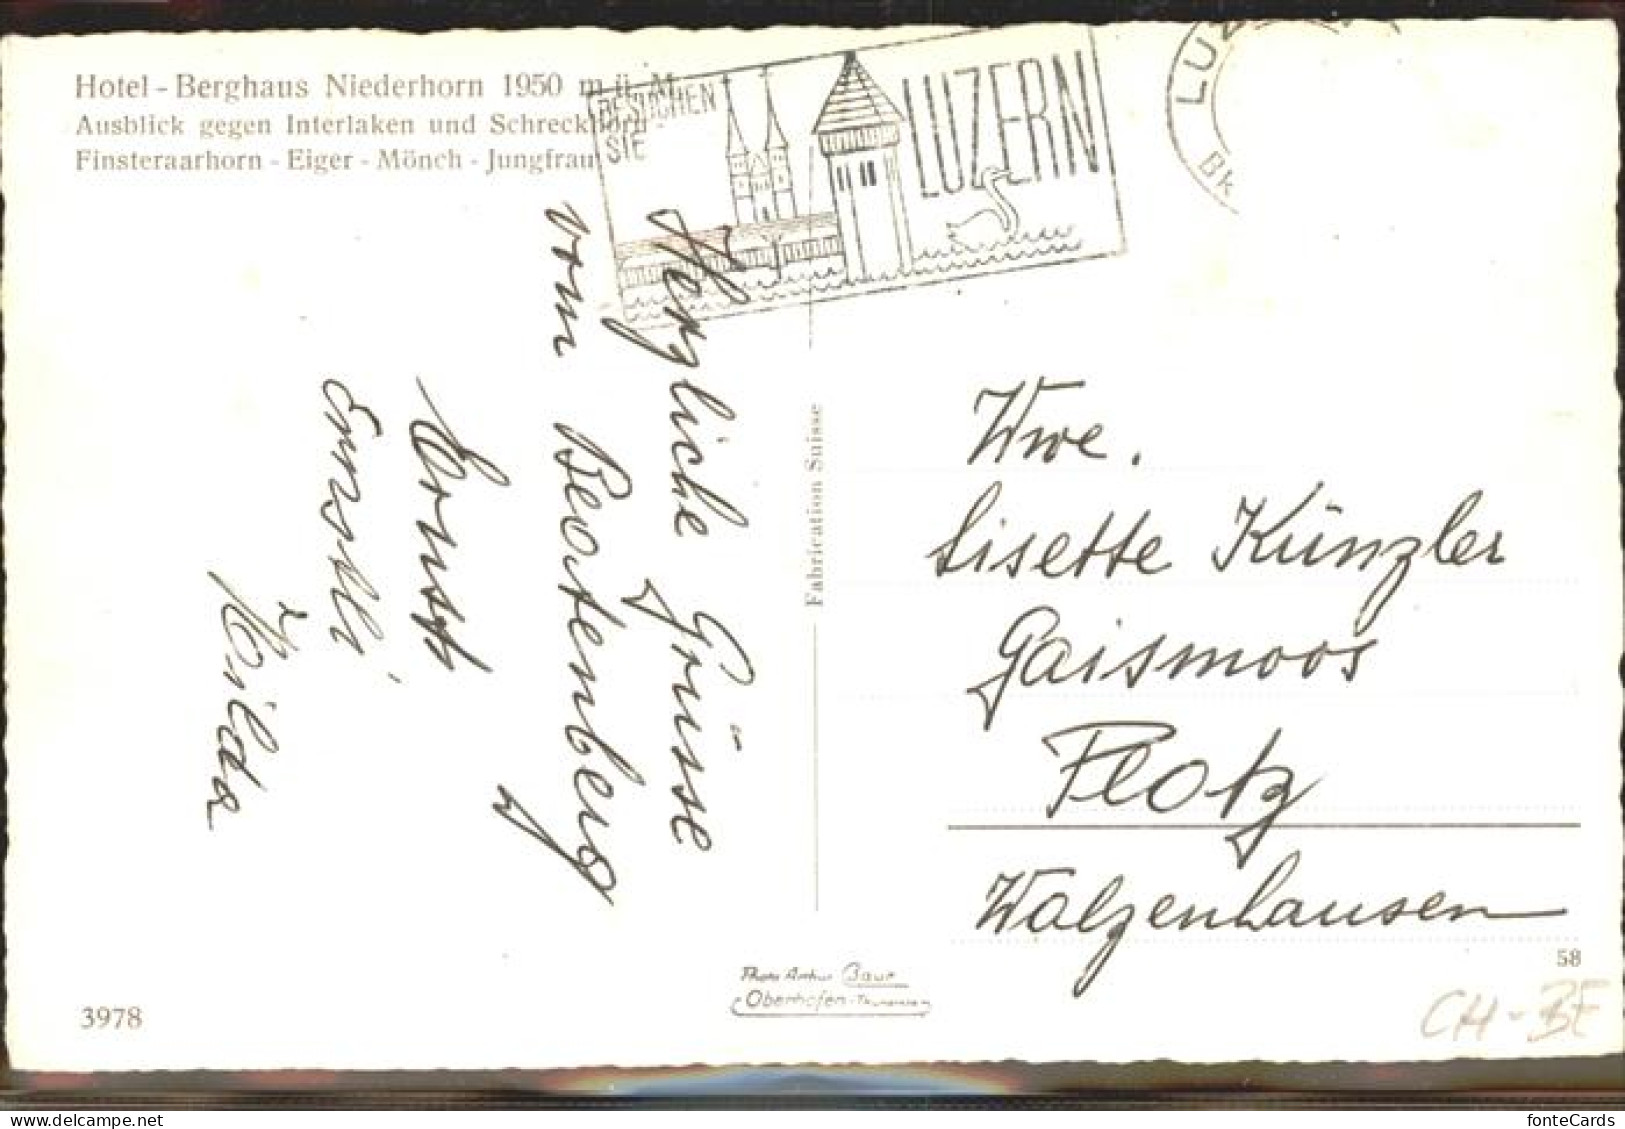 Hotel - Berghaus Niederhorn 1950 m ü. M.
Ausblick gegen Interlaken und Schreckhorn
Finsteraarhorn - Eiger - Mönch - Jungfrau
BESUCHEN
SIE
LUZERN
LUZ
Herzliche Grüsse
vom Beatenberg
Ernst
Ernstli
Hilda
Fabrication Suisse
Wwe.
Lisette Künzler
Gaismoos
Platz
Walzenhausen
58
Photo Arthur Baur
Oberhofen-Thunersee
3978
CH-BE
fonteCards